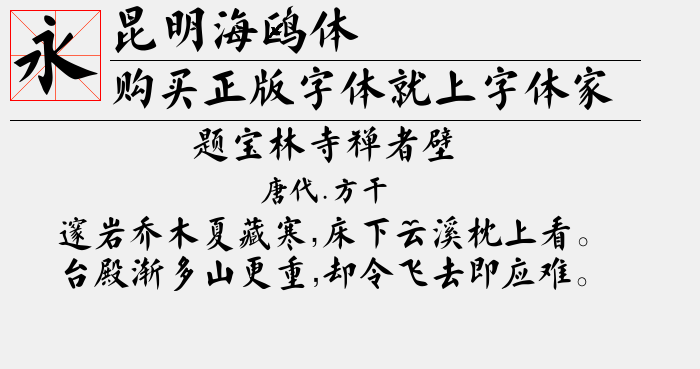 永
昆明海鸥体
购买正版字体就上字体家
题宝林寺禅者壁
唐代.方干
邃岩乔木夏藏寒,床下云溪枕上看。
台殿渐多山更重,却令飞去即应难。